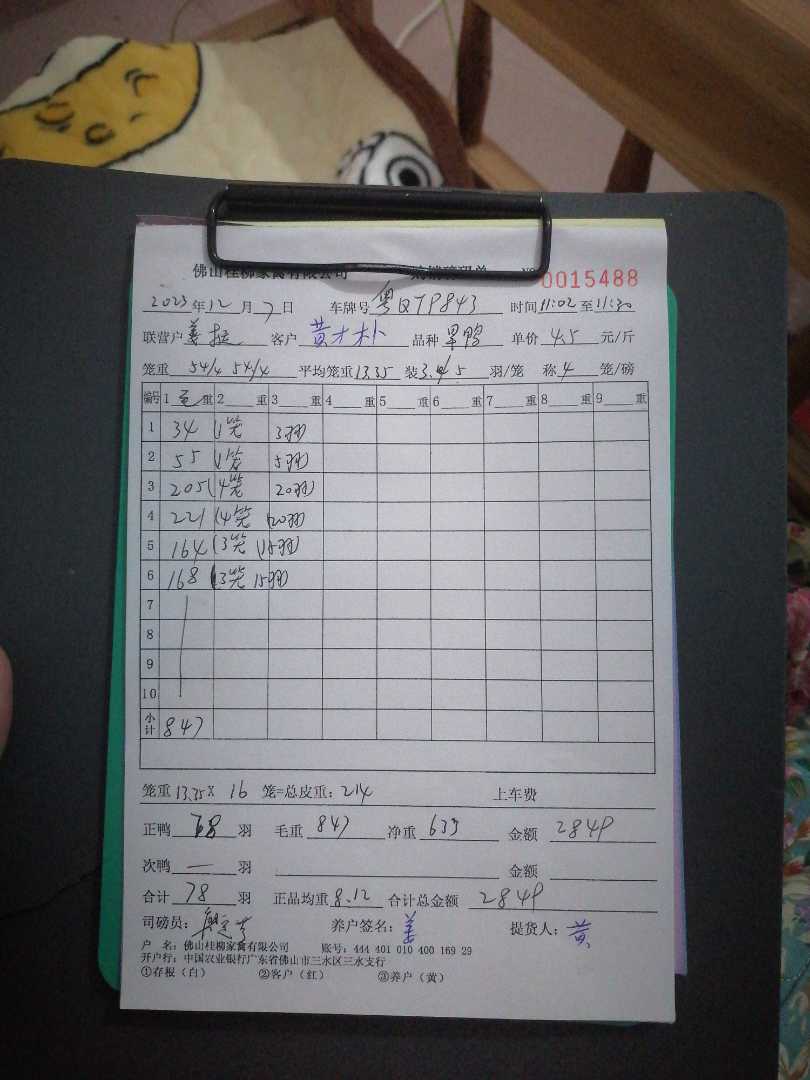 佛山桂柳家禽有限公司
0015488
2023年12月7日 车牌号粤QTP843 时间11:02至11:30
联营户姜 客户黄才朴 品种 单价4.5元/斤
笼重54/4 54/4 平均笼重13.35 装3.4.5羽/笼 称4笼/磅
编号 1毛重 2重 3重 4重 5重 6重 7重 8重 9重
1 34 (1笼 3羽)
2 55 (1笼 5羽)
3 205 (4笼 20羽)
4 221 (4笼 20羽)
5 164 (3笼 15羽)
6 168 (3笼 15羽)
7
8
9
10
小计 847
笼重13.35×16笼=总皮重:214 上车费
正鸭78羽 毛重847 净重633 金额2849
次鸭—羽 金额
合计78羽 正品均重8.12 合计总金额2849
司磅员: 养户签名:姜 提货人:黄
户 名:佛山桂柳家禽有限公司 账号:444 401 010 400 169 29
开户行:中国农业银行广东省佛山市三水区三水支行
①存根(白) ②客户(红) ③养户(黄)